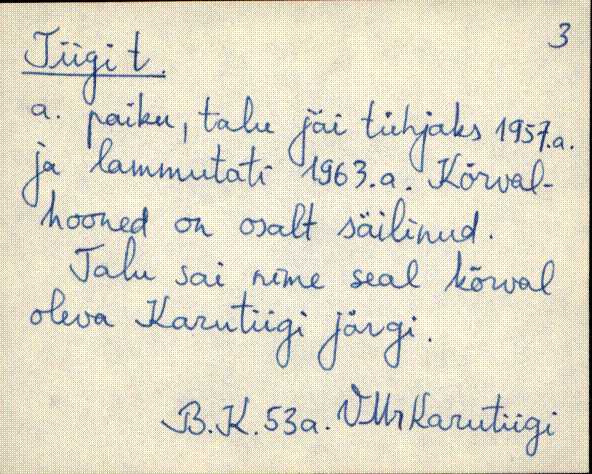 3
Tiigi t.
a. paiku, talu jäi tühjaks 1957.a.
ja lammutati 1963.a. Kõrval-
hooned on osalt säilinud.
Talu sai nime seal kõrval
oleva Karutiigi järgi.
B.K. 53a. VMr Karutiigi